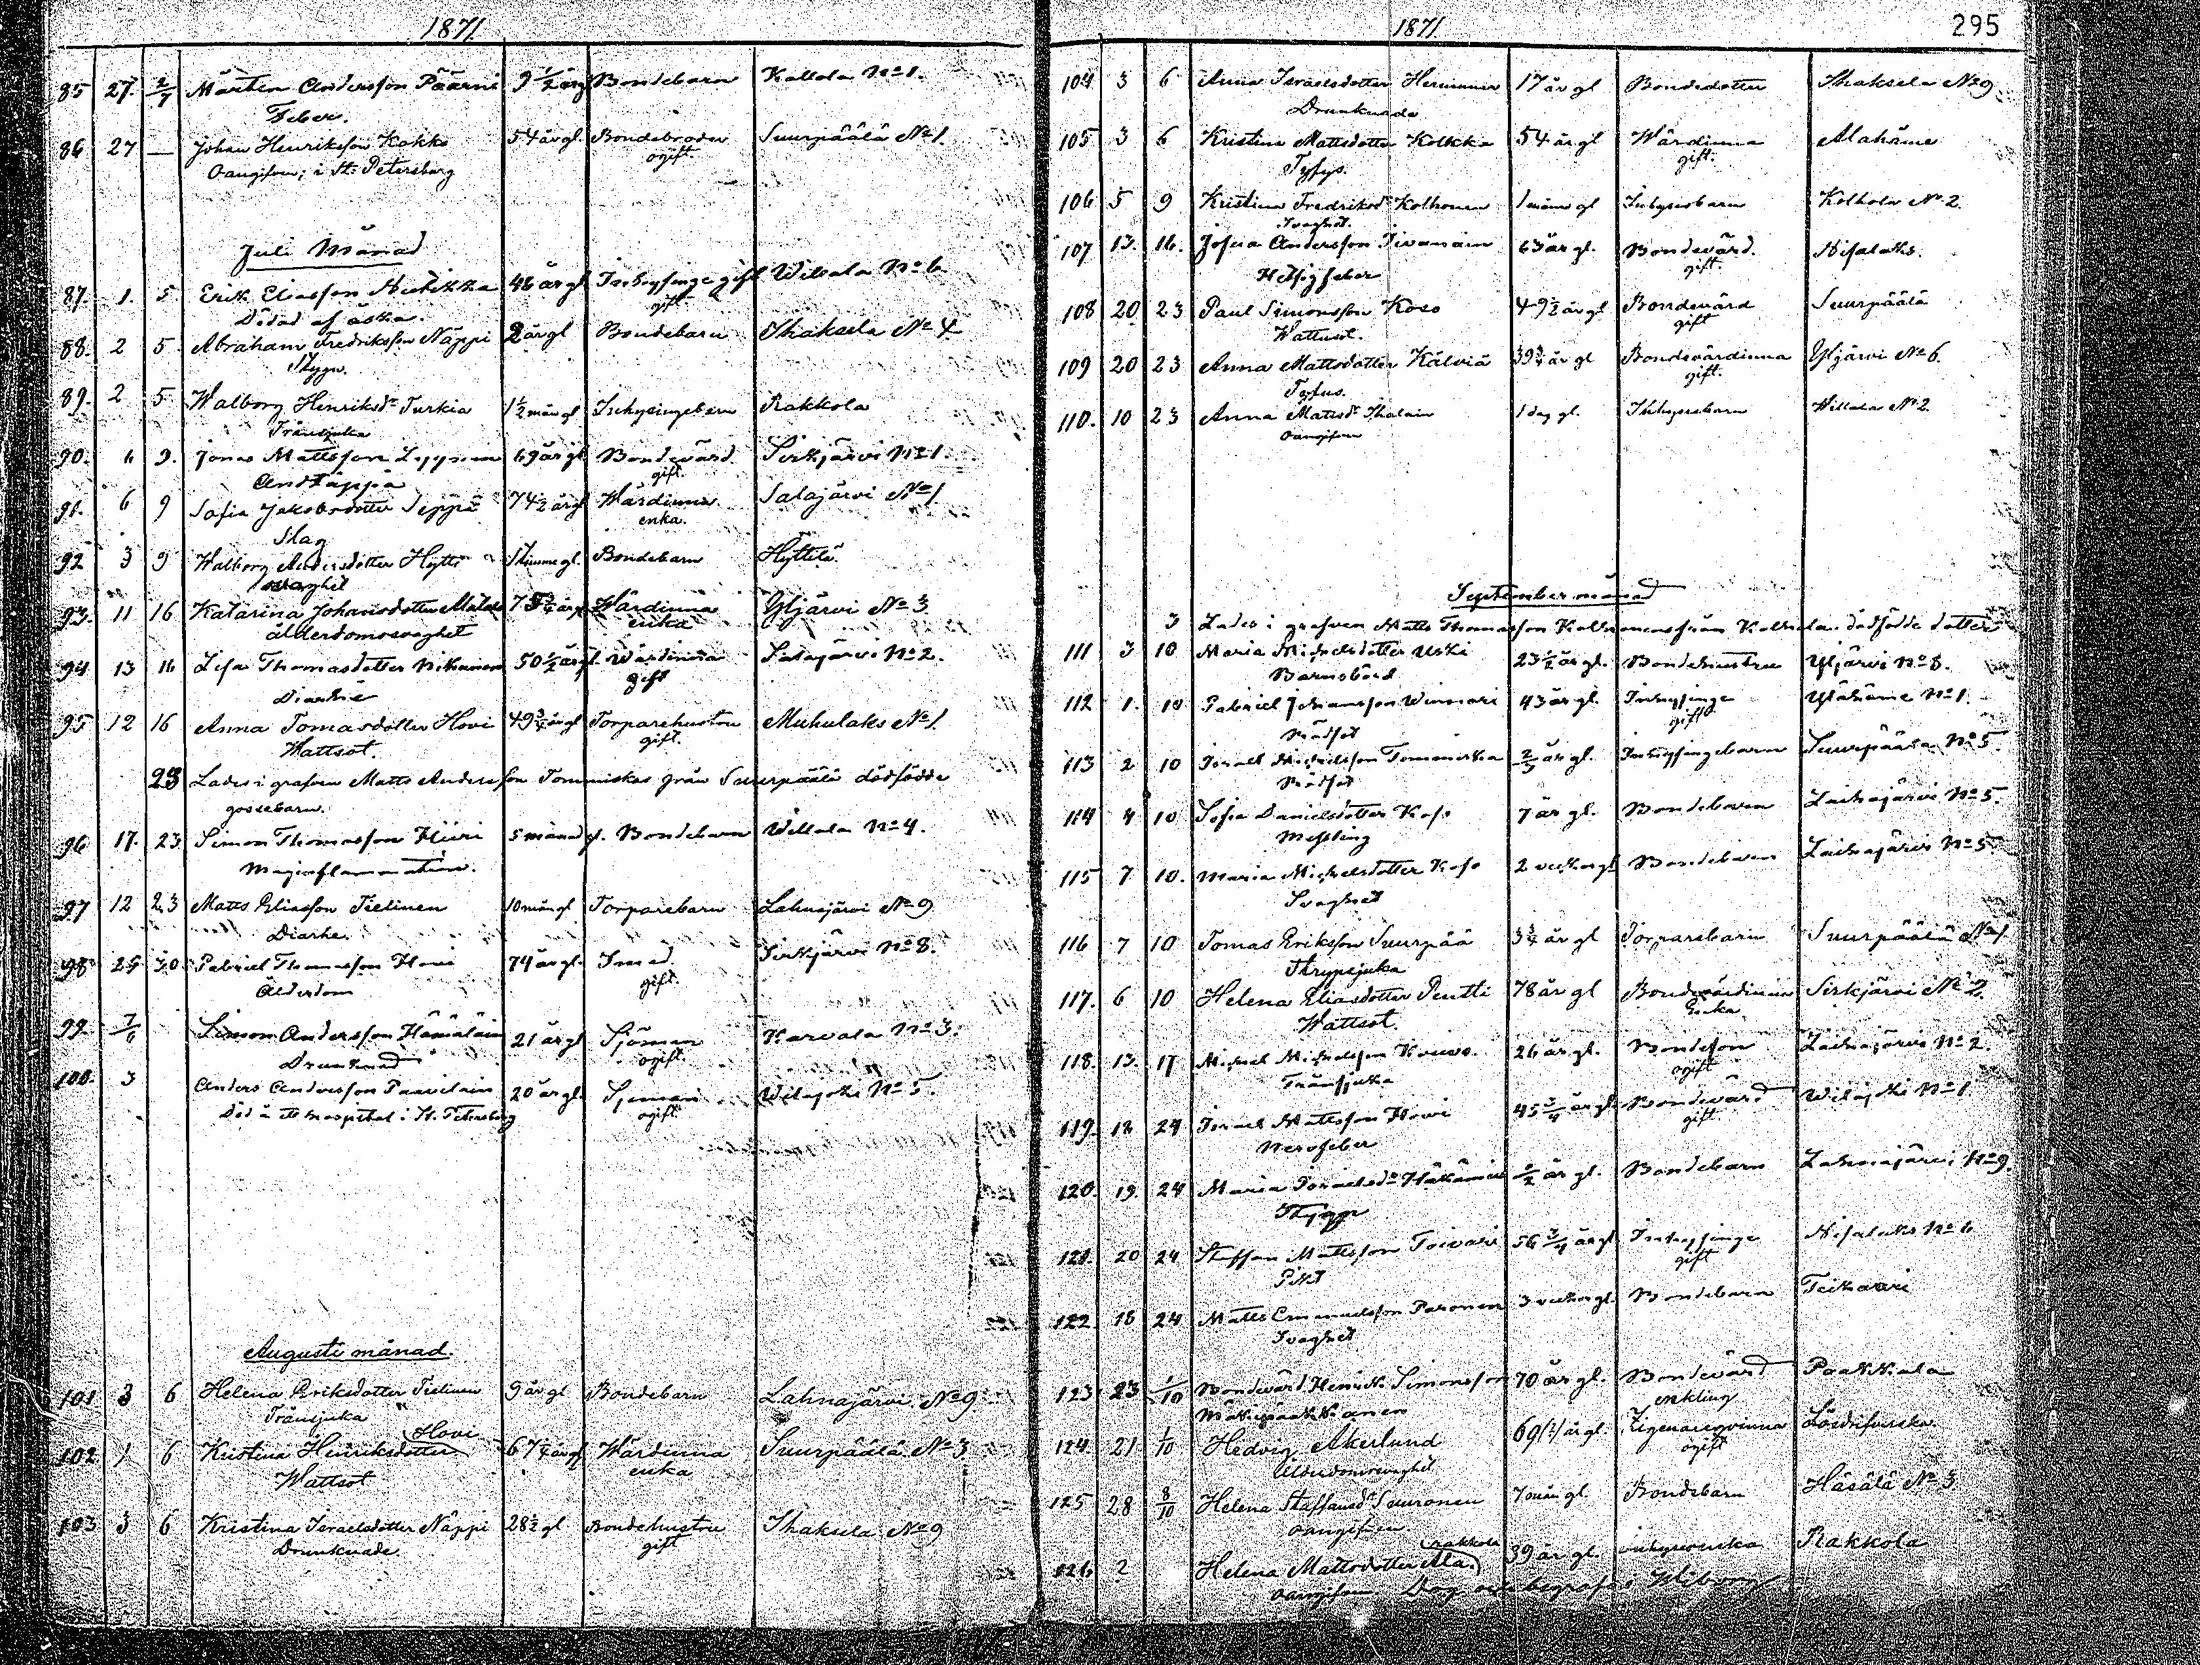 1871
85 27. 2/7 Mårten Andersson Päärni 9 1/2 årg Bondebarn Kattola No 1.
Feber.
86 27 — Johan Henriksson Kakko 54 år gl. Bondebroder Suurpäälä No 1.
Oangifven, i St. Petersburg ogift.
Juli Månad
87. 1. 5 Erik Eliasson 46 år gl Inhysinge gift Wilvala No 6.
Dödad af åska. gift.
88. 2 5 Abraham Fredriksson Näppi 2 år gl Bondebarn Ihaksela No 4
Stygn.
89. 2 5 Walborg Henriksdr Turkia 1 1/2 mån gl Inhysingebarn Rakkola
Trånsjuka
90. 6 9. Jonas Mattsson Lyynen 69 år gl Bondevärd Sirkjärvi No 1.
Andtäppa gift.
91. 6 9 Sofia Jakobsdotter Seppä 74 1/2 år gl Wärdinna Salajärvi No 1
Slag enka.
92 3 9 Walborg Andersdotter Hytti 1 timme gl. Bondebarn Hyttilä
svaghet
93. 11 16 Katarina Johansdotter 75 3/4 år gl Wärdinna Yljärvi No 3
ålderdomssvaghet enka
94 13 16 Lisa Thomasdotter Nikunen 50 1/2 år gl. Wärdinna Salajärvi No 2.
Diarhé gift
95 12 16 Anna Tomasdotter Hovi 49 3/4 år gl Torparehustru Muhulaks No 1
Wattsot. gift.
23 Lades i grafven Matts Andersson Tommiskas från Suurpäälä dödfödde
gossebarn.
96 17. 23 Simon Thomasson Hiiri 5 månad gl. Bondebarn Willala No 4.
Maginflammation.
97 12 23 Matts Eliasson Tielinen 10 mån gl Torparebarn Lahnajärvi No 9
Diarhe.
98 25 30 Gabriel Thomasson Hovi 74 år gl. Smed Sirkjärvi No 8.
Ålderdom gift.
99. 7/6 Simon Andersson Hämäläin 21 år gl Sjöman Karvala No 3.
Drunknad ogift.
100. 3 Anders Andersson Paavilain 20 år gl. Sjöman Wilajoki No 5.
Död å ett hospital i St. Petersburg ogift.
Augusti månad.
101 3 6 Helena Eriksdotter Tielinen 9 år gl Bondebarn Lahnajärvi No 9
Trånsjuka
102 1 6 Kristina Henriksdotter Hovi 67 1/4 år gl Wärdinna Suurpäälä No 3
Wattsot enka
103 3 6 Kristina Israelsdotter Näppi 28 1/2 gl Bondehustru Ihaksela No 9
Drunknade. gift
1871 295
104 3 6 Anna Israelsdotter 17 år gl Bondedotter Ihaksela No 9.
Drunknade
105 3 6 Kristina Mattsdotter Kolkka 54 år gl Wärdinna Alahäme
Tyfus. gift.
106 5 9 Kristina Fredriksdr Kolhonen 1 mån gl Inhysesbarn Kolhola No 2.
Svaghet.
107 13. 16. Josua Andersson 63 år gl. Bondevärd. Nisalaks.
Hetsigfeber gift.
108 20 23 Paul Simonsson Koso 49 1/2 år gl Bondevärd Suurpäälä
Wattusot. gift
109 20 23 Anna Mattsdotter Kälviä 39 3/4 år gl Bondevärdinna Yljärvi No 6.
Tyfus. gift.
110. 10 23 Anna Mattsdr Ihalain 1 dag gl. Inhysesbarn Willala No 2.
Oangifven
September månad
3 Lades i grafven Matts Thomasson Kolhonens från Kolhola dödfödde dotter
111 3 10 Maria Michelsdotter Uski 23 1/2 år gl. Bondehustru Yljärvi No 8.
Barnsbörd
112 1. 10 Gabriel Johansson Winnari 43 år gl. Inhysinge Ylähäme No 1.
Rödsot gift
113 2 10 Israel Michelsson Tommiska 2/3 år gl. Inhysingebarn Suurpäälä No 5.
Rödsot
114 4 10 Sofia Danielsdotter Koso 7 år gl. Bondebarn Laihajärvi No 5.
Messling
115 7 10. Maria Michelsdotter Koso 2 veckor gl Bondebarn Laihajärvi No 5.
Svaghet
116 7 10 Tomas Eriksson Suurpää 3 3/4 år gl Torparebarn Suurpäälä No 1.
Strypsjuka
117. 6 10 Helena Eliasdotter Pentti 78 år gl Bondevärdinna Sirkjärvi No 2.
Wattsot. Enka
118. 13. 17 Michael Michelsson Kouvo. 26 år gl. Bondeson Laihajärvi No 2.
Trånsjuka ogift
119. 18 24 Israel Mattsson Hovi 45 3/4 år gl. Bondevärd Wilajoki No 1
Nervfeber gift.
120. 19. 24 Maria Israelsdr Häkämies 1/2 år gl. Bondebarn Lahnajärvi No 9.
Stygn
121. 20 24 Staffan Mattsson Toivari 56 3/4 år gl Inhysinge Nisalaks No 6
gift
122. 18 24 Matts Emanuelsson Paronen 3 veckor gl. Bondebarn Teikari
Svaghet
123 23 1/10 Bondevärd Henrik Simonsson 70 år gl. Bondevärd Paakkola
enkling
124. 21 1/10 Hedvig Åkerlund 69 år gl. Zigenarqvinna
Ålderdomssvaghet ogift
125 28 8/10 Helena Staffansdr Suuronen 7 mån gl. Bondebarn Häsälä No 3.
Oangifven
126 2 Helena Mattsdotter Ala rakkola 39 år gl. inhysesenka Rakkola
oangifven Dog och begrofs i Wiborg